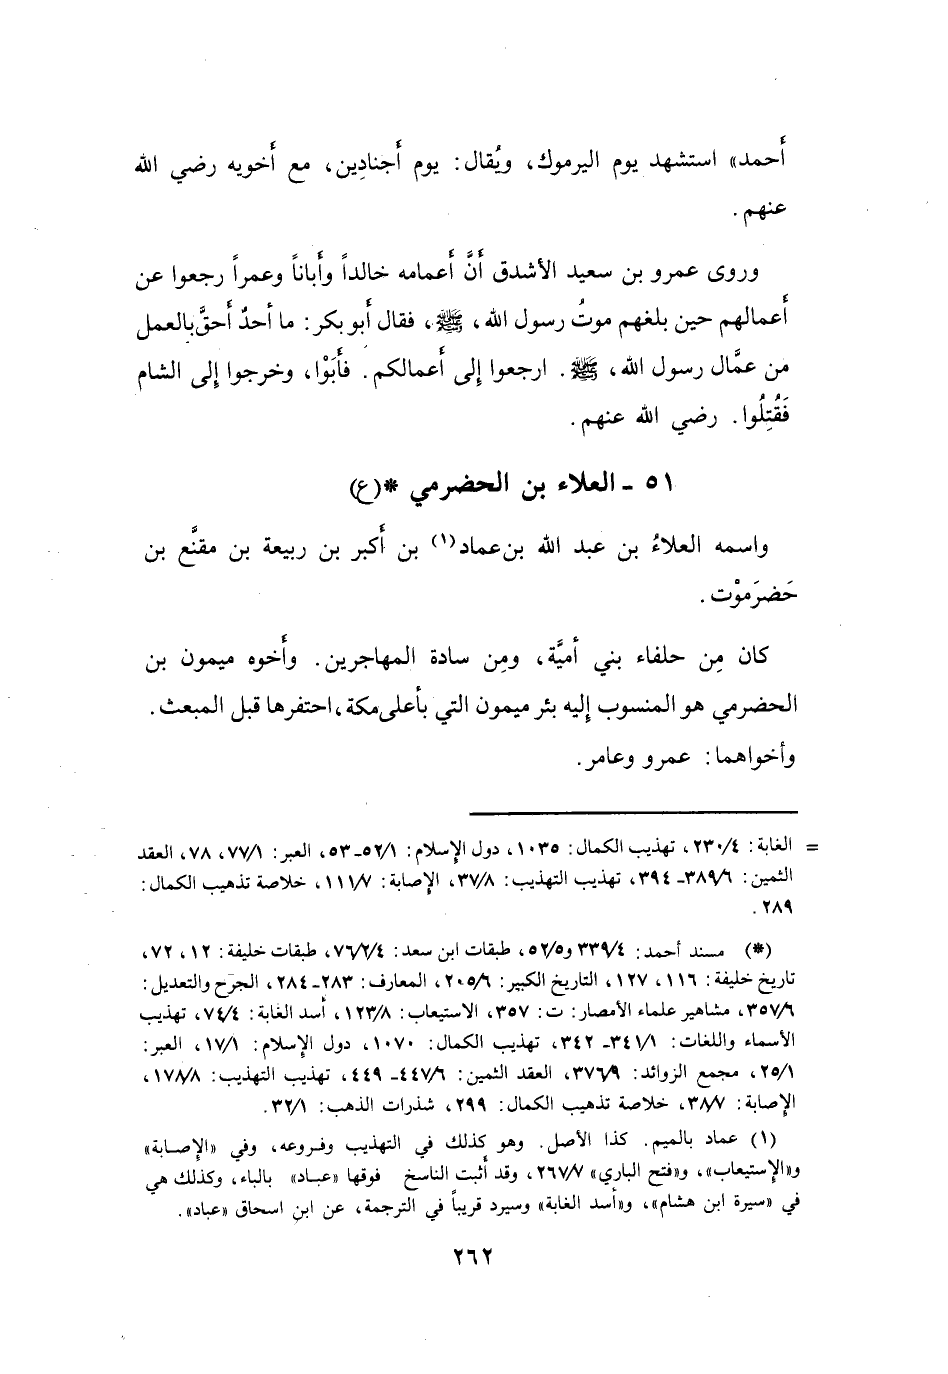 أَحمد» استشهد يوم اليرموك، ويُقال: يوم أَجنادِين، مع أَخويه رضي الله
عنهم.
وروى عمرو بن سعيد الأشدق أَنَّ أَعمامه خالداً وأَباناً وعمراً رجعوا عن
أَعمالهم حين بلغهم موتُ رسول الله، ﷺ، فقال أَبو بكر: ما أحدٌ أَحقَّ بالعمل
من عمَّال رسول الله، ﷺ. ارجعوا إلى أَعمالكم. فأَبَوْا، وخرجوا إلى الشام
فَقُتِلُوا. رضي الله عنهم.
٥١ - العلاء بن الحضرمي *(ع)
واسمه العلاءُ بن عبد الله بن عماد(١) بن أَكبر بن ربيعة بن مقنَّع بن
حَضرَموْت.
كان مِن حلفاء بني أميَّة، ومِن سادة المهاجرين. وأَخوه ميمون بن
الحضرمي هو المنسوب إليه بئر ميمون التي بأعلى مكة، احتفرها قبل المبعث.
وأخواهما: عمرو وعامر.
= الغابة: ٢٣٠/٤، تهذيب الكمال: ١٠٣٥، دول الإسلام: ٥٢/١-٥٣، العبر: ٧٧/١، ٧٨، العقد
الثمين: ٣٨٩/٦- ٣٩٤، تهذيب التهذيب: ٣٧/٨، الإصابة: ١١١/٧، خلاصة تذهيب الكمال:
٢٨٩.
(*) مسند أحمد: ٣٣٩/٤ و٥٢/٥، طبقات ابن سعد: ٧٦/٢/٤، طبقات خليفة: ١٢، ٧٢،
تاريخ خليفة: ١١٦، ١٢٧، التاريخ الكبير: ٢٠٥/٦، المعارف: ٢٨٣-٢٨٤، الجرح والتعديل:
٣٥٧/٦، مشاهير علماء الأمصار: ت: ٣٥٧، الاستيعاب: ١٢٣/٨، أسد الغابة: ٧٤/٤، تهذيب
الأسماء واللغات: ٣٤١/١- ٣٤٢، تهذيب الكمال: ١٠٧٠، دول الإسلام: ١٧/١، العبر:
٢٥/١، مجمع الزوائد: ٣٧٦/٩، العقد الثمين: ٤٤٧/٦- ٤٤٩، تهذيب التهذيب: ١٧٨/٨،
الإصابة: ٣٨/٧، خلاصة تذهيب الكمال: ٢٩٩، شذرات الذهب: ٣٢/١.
(١) عماد بالميم. كذا الأصل. وهو كذلك في التهذيب وفروعه، وفي «الإصابة»
و«الإستيعاب»، و«فتح الباري» ٢٦٧/٧، وقد أثبت الناسخ فوقها «عباد» بالباء، وكذلك هي
في «سيرة ابن هشام»، و«أسد الغابة» وسيرد قريباً في الترجمة، عن ابن اسحاق «عباد».
٢٦٢